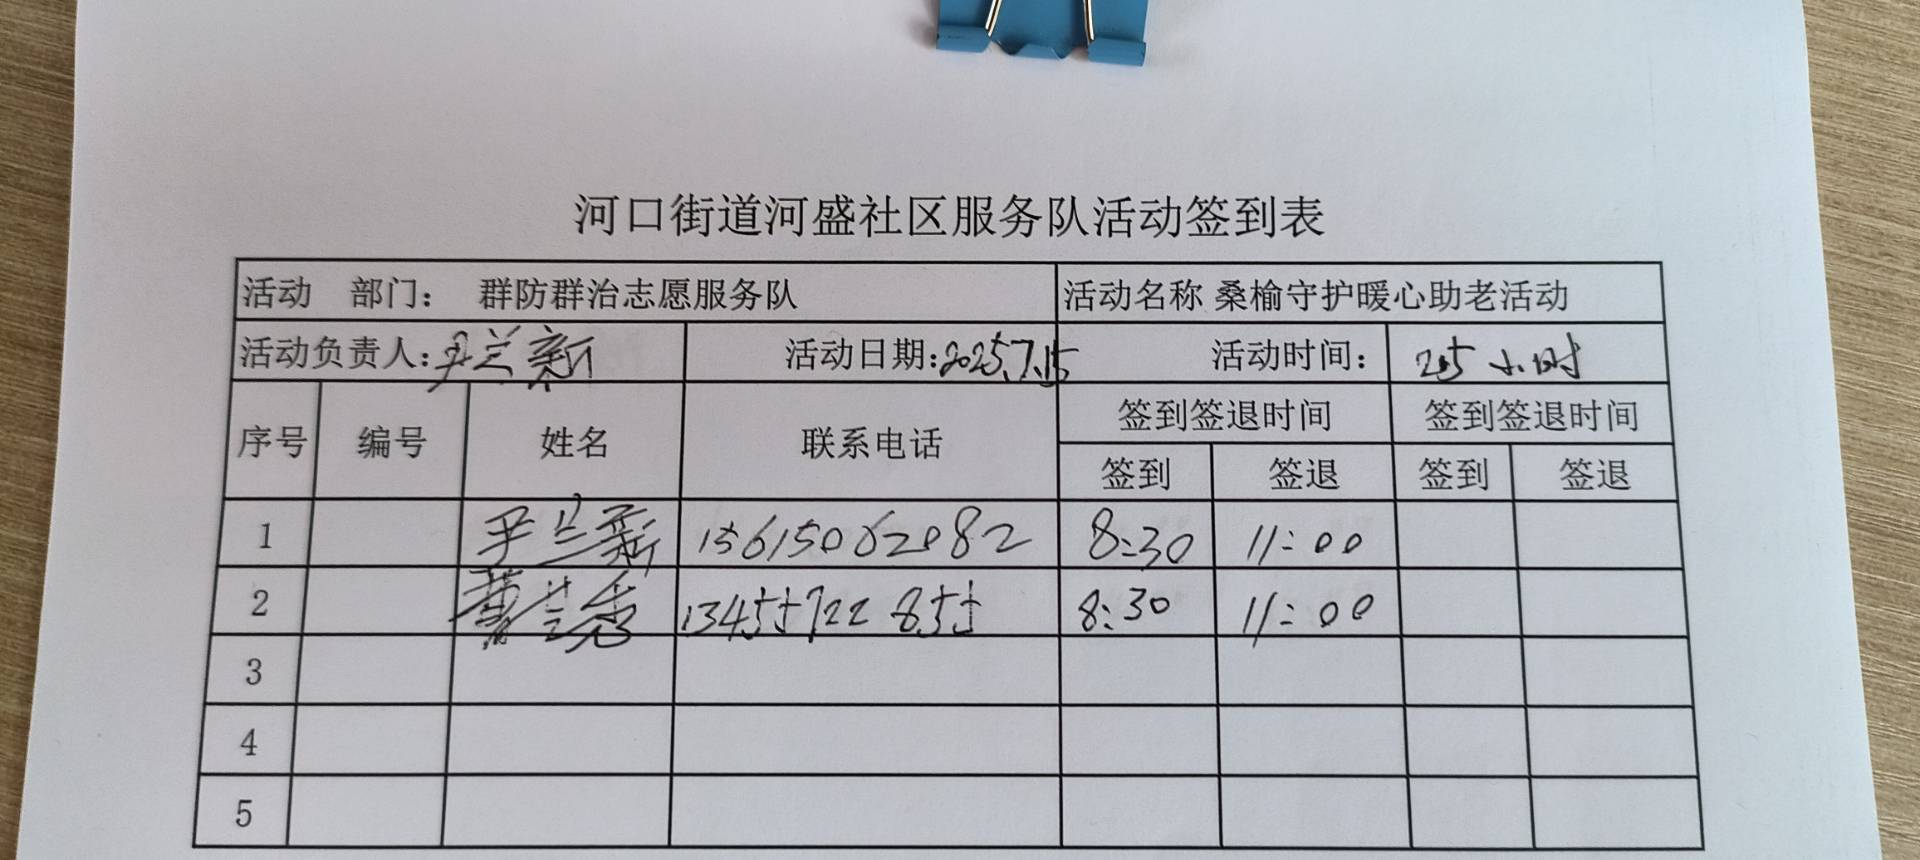 河口街道河盛社区服务队活动签到表
活动 部门： 群防群治志愿服务队 活动名称 桑榆守护暖心助老活动
活动负责人:尹兰新 活动日期:2025.7.15 活动时间： 2.5小时
序号 编号 姓名 联系电话 签到签退时间 签到签退时间
签到 签退 签到 签退
1 尹兰新 15615062082 8:30 11:00
2 兰秀 13455722855 8:30 11:00
3
4
5